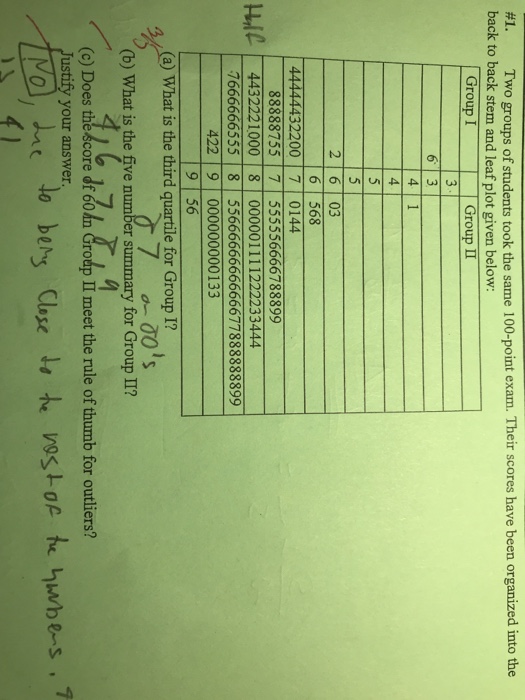 #1. Two groups of students took the same 100-point exam. Their scores have been organized into the
back to back stem and leaf plot given below:
Group I Group II
3
6 3
4 1
4
5
5
2 6 03
6 568
44444432200 7 0144
88888755 7 555556666788899
4432221000 8 000001111222233444
7666666555 8 5566666666666677888888899
422 9 000000000133
9 56
3/5
(a) What is the third quartile for Group I?
87 or 80's
(b) What is the five number summary for Group II?
4, 6, 7, 8, 9
(c) Does the score of 60 in Group II meet the rule of thumb for outliers?
Justify your answer.
No, due to being close to the rest of the numbers,
is 41